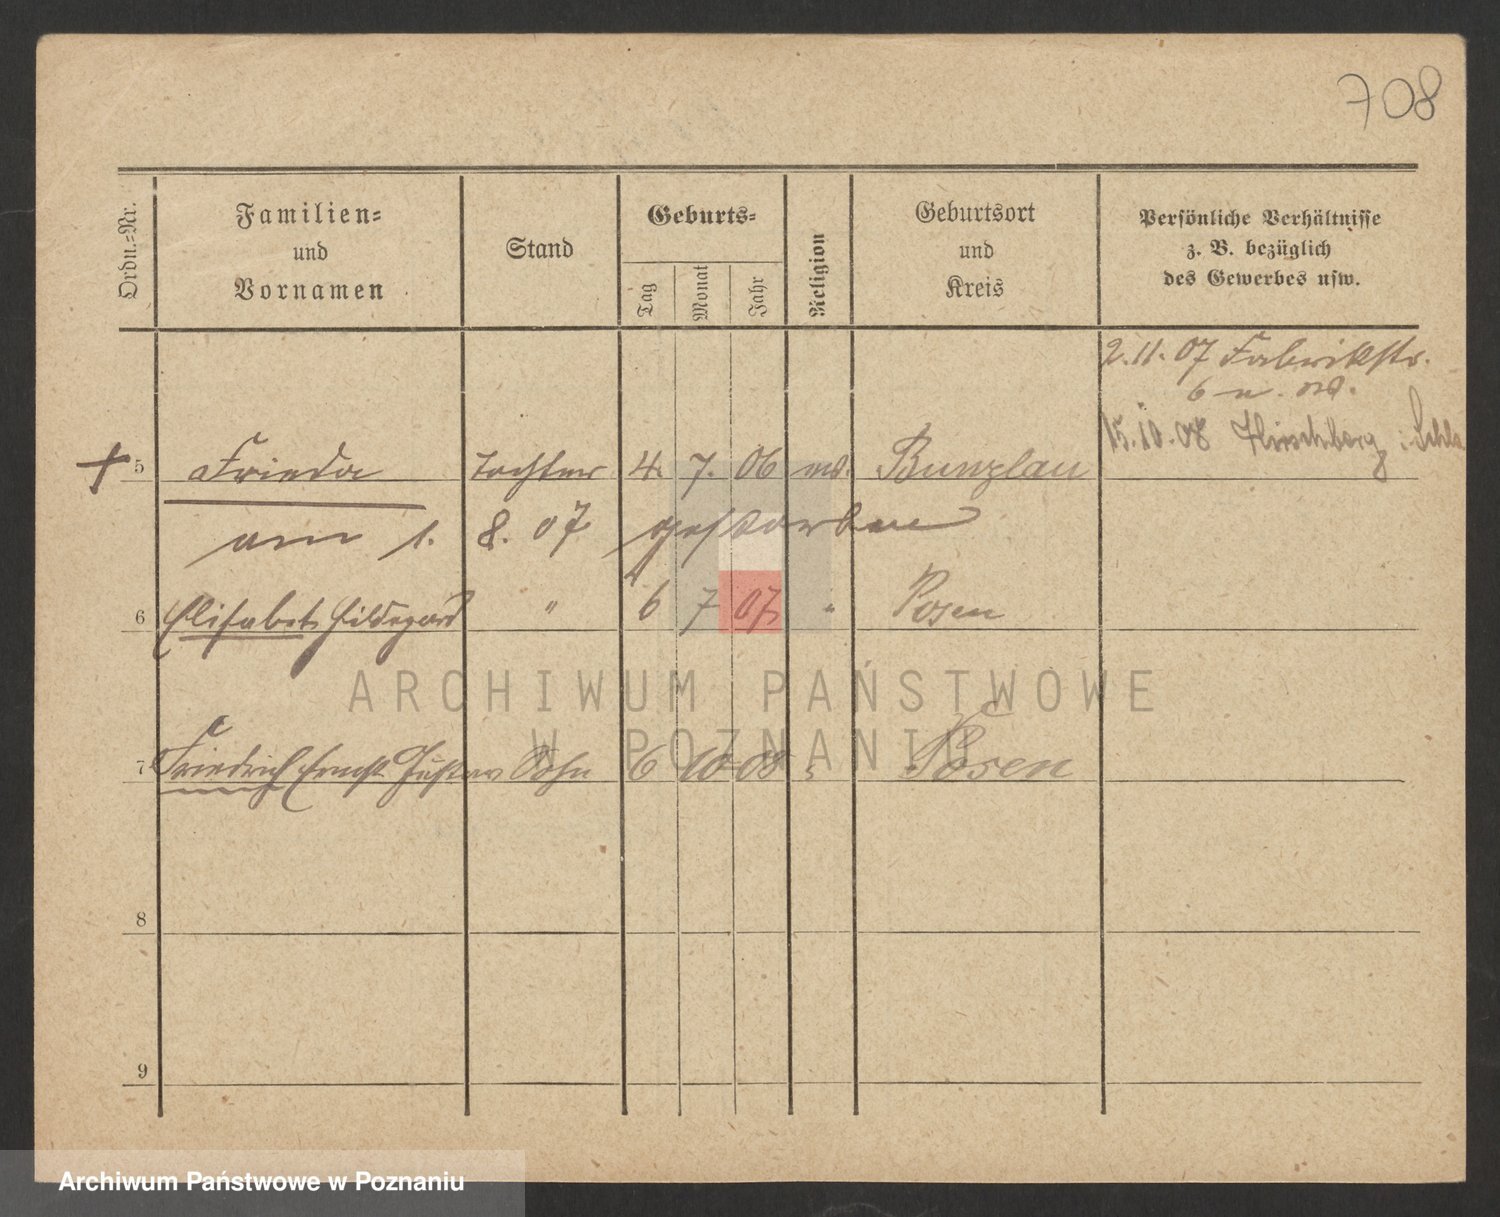 708
Ordn.-Nr.
Familien-
und
Vornamen
Stand
Geburts-
Tag
Monat
Jahr
Religion
Geburtsort
und
Kreis
Persönliche Verhältnisse
z. B. bezüglich
des Gewerbes usw.
2.11.07 Fabrikstr.
6
15.10.08 Hirschberg i. Schls
5 Frieda Tochter 4. 7. 06 Bunzlau
am 1. 8. 07 gestorben
6 Elisabet Hildegard " 6 7 07 " Posen
7 Friedrich Ernst Gustav Sohn 6 10 08 " Posen
8
9
ARCHIWUM PAŃSTWOWE
W POZNANIU
Archiwum Państwowe w Poznaniu